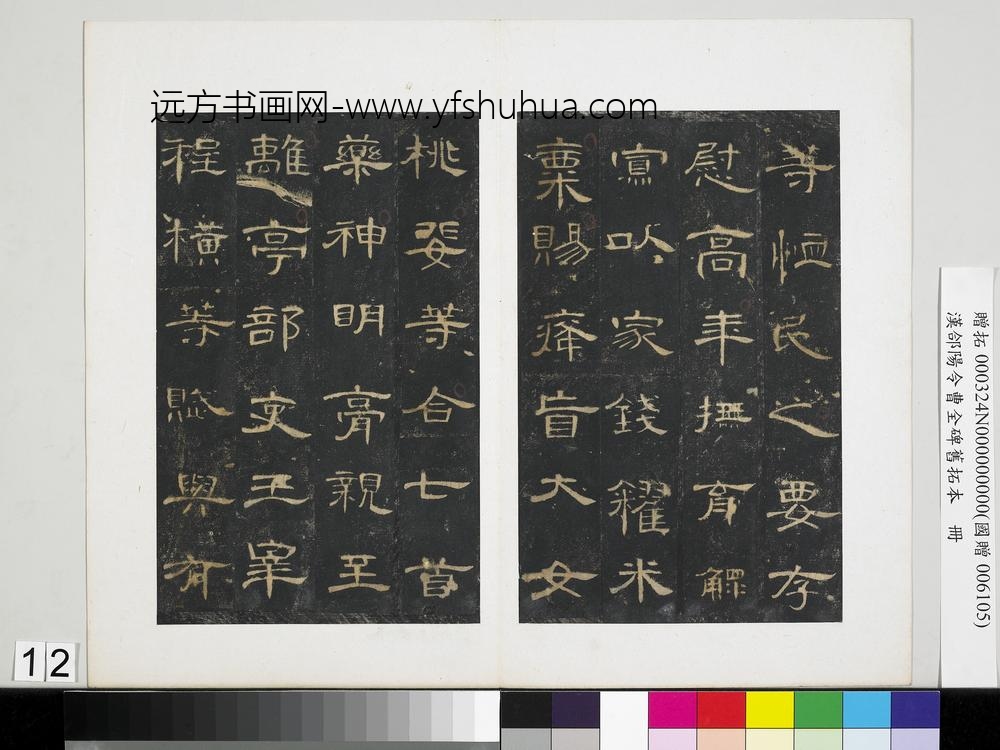 远方书画网-www.yfshuhua.com
等恤民之要存
慰高年撫育鰥
寡以家錢糴米
粟賜癃盲大女
桃婓等合七首
藥神明膏親至
離亭部吏王宰
程橫等賦與有
贈拓 000324N000000000(國贈 006105)
漢郃陽令曹全碑舊拓本 冊
12